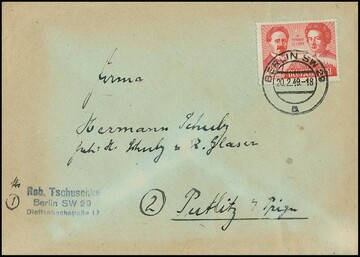 BERLIN SW 29
20.2.49.-18
a
Firma
Hermann Schulz
Inh: H. Schulz u. R. Glaser
Rob. Tschuschke
Berlin SW 29
Dieffenbachstraße 17
1
2 Putlitz / Prign